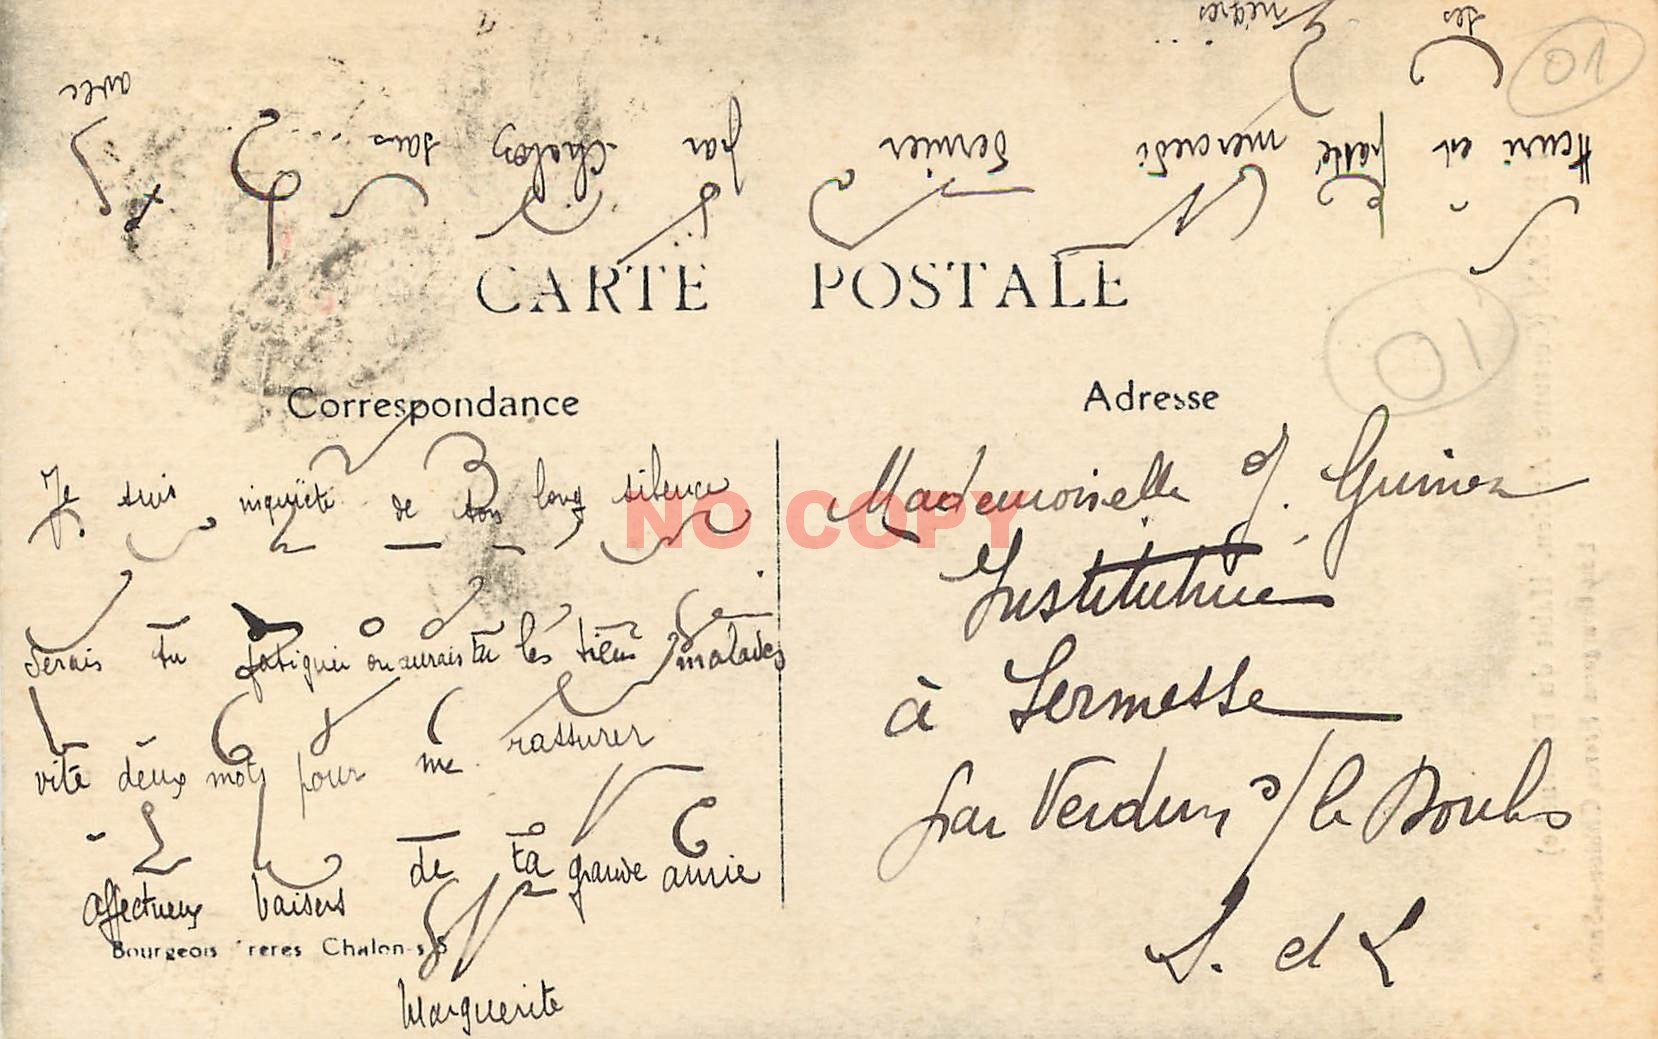 Henri est passé mercredi dernier par Chalon sans... avec
ses nièces...
01
CARTE POSTALE
01
Correspondance
Je suis inquiète de ton long silence
serais tu fatiguée ou aurais tu les tiens malades
vite deux mots pour me rassurer
affectueux baisers de ta grande amie
Marguerite
Bourgeois Frères Chalon-s-S
Adresse
Mademoiselle J. Guinez
Institutrice
à Sermesse
par Verdun s/ le Doubs
S. et L
NO COPY